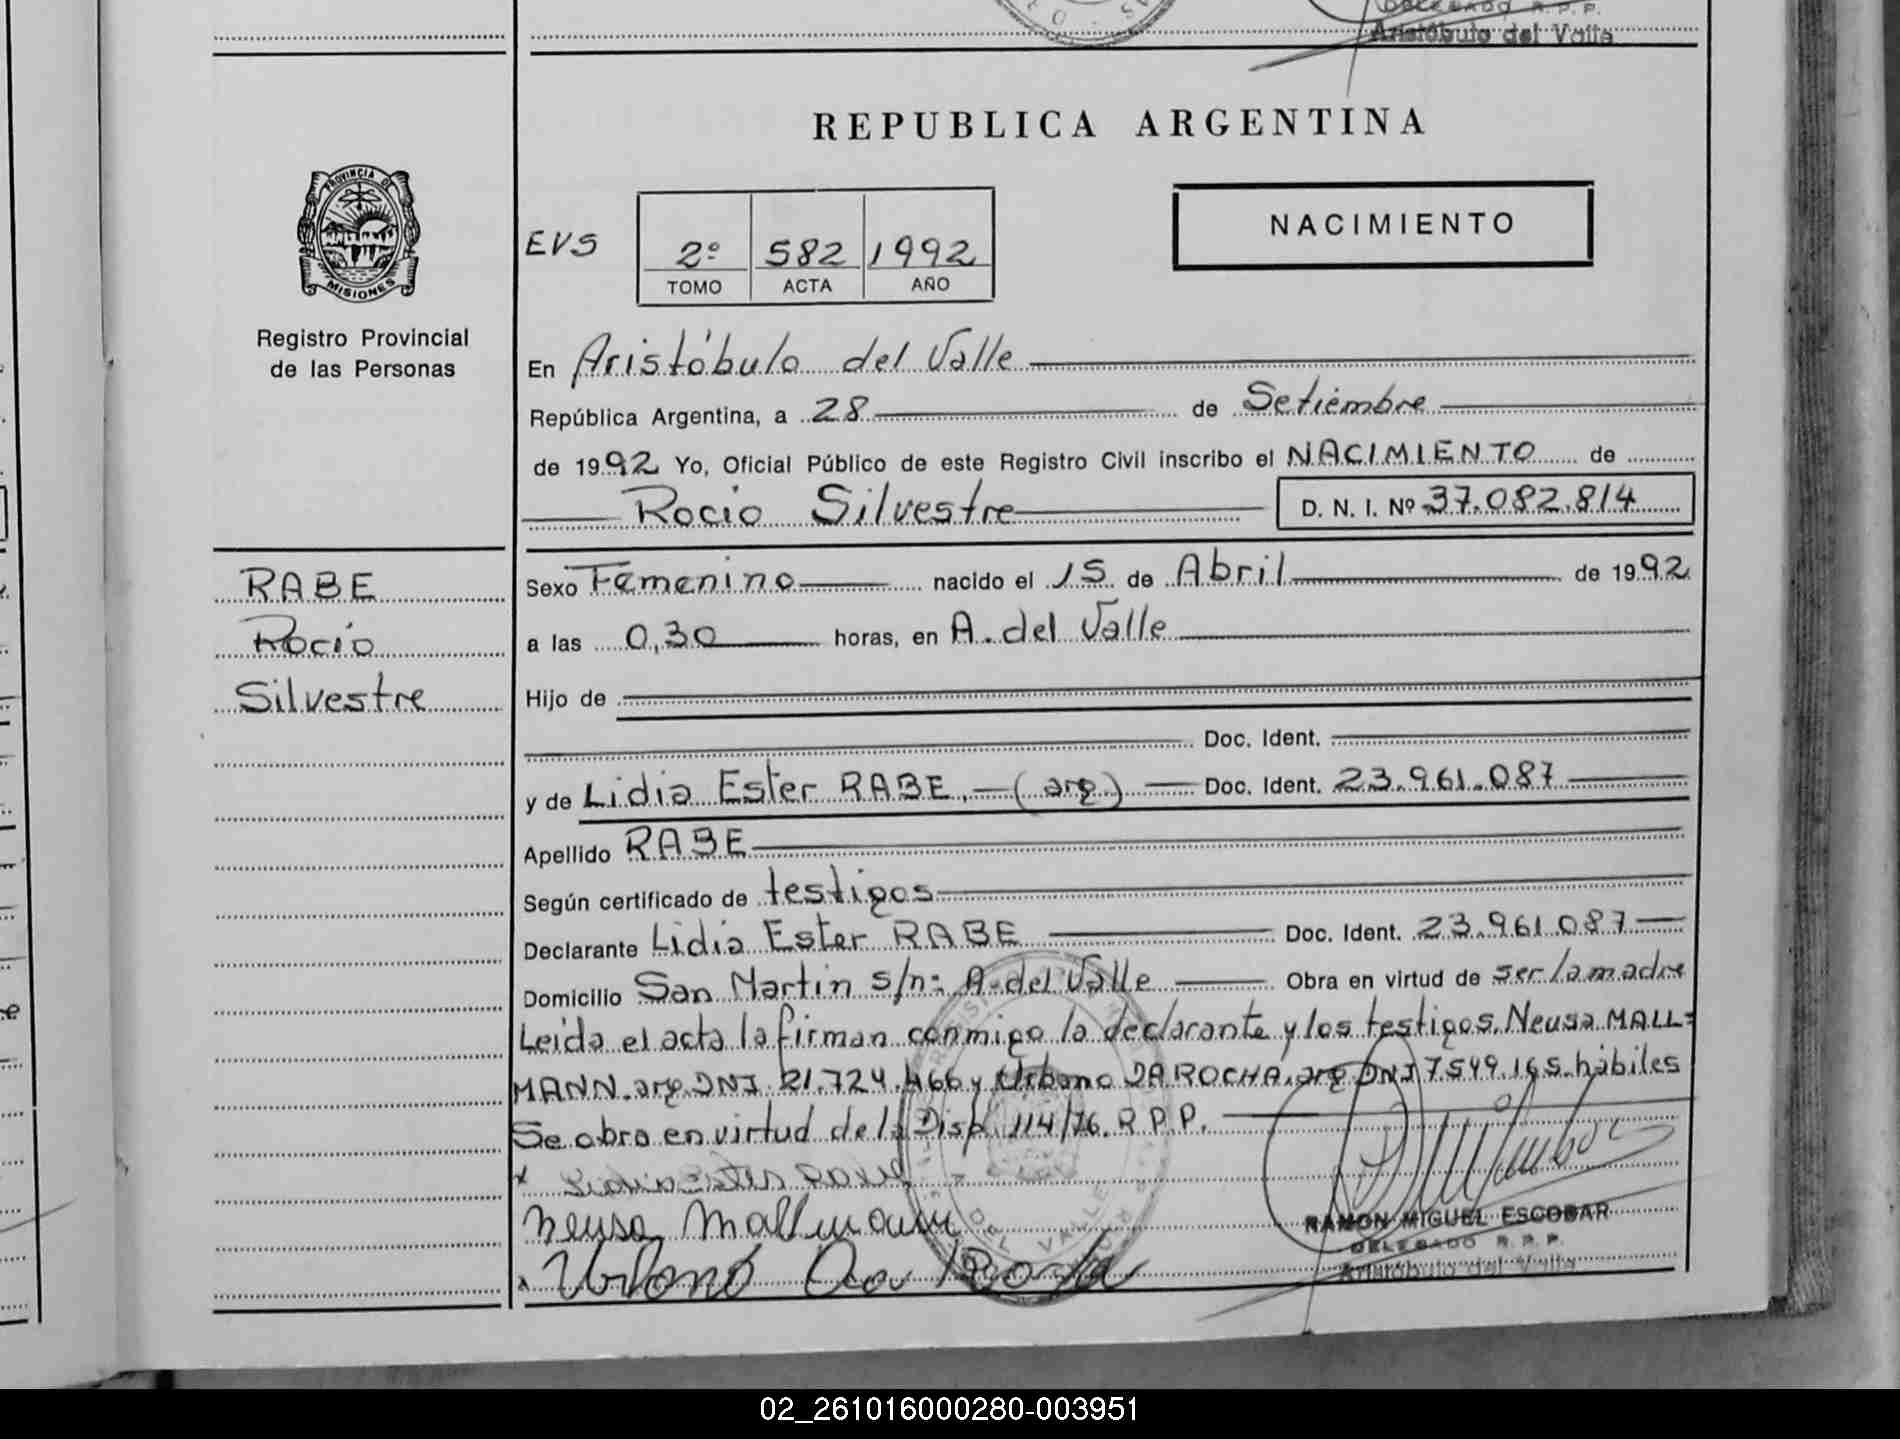 DELEGADO R.P.P.
Aristóbulo del Valle
REPUBLICA ARGENTINA
PROVINCIA DE
MISIONES
Registro Provincial
de las Personas
EVS
2º 582 1992
TOMO ACTA AÑO
NACIMIENTO
En Aristóbulo del Valle
República Argentina, a 28 de Setiembre
de 1992 Yo, Oficial Público de este Registro Civil inscribo el NACIMIENTO de
Rocio Silvestre D. N. I. Nº 37.082.814
RABE
Rocio
Silvestre
Sexo Femenino nacido el 15 de Abril de 1992
a las 0,30 horas, en A. del Valle
Hijo de
Doc. Ident.
y de Lidia Ester RABE. (arg.) Doc. Ident. 23.961.087
Apellido RABE
Según certificado de testigos
Declarante Lidia Ester RABE Doc. Ident. 23.961.087
Domicilio San Martin s/n: A. del Valle Obra en virtud de ser la madre
Leida el acta la firman conmigo la declarante y los testigos. Neusa MALL=
MANN. arg. DNI 21.724.466 y Urbano DA ROCHA. arg DNI 7.549.165. hábiles
Se obra en virtud de la Disp. 114/76. R.P.P.
Neusa Mallmann
Urbano Da Rocha
DEL VALLE
RAMON MIGUEL ESCOBAR
DELEGADO R.P.P.
Aristóbulo del Valle
02_261016000280-003951